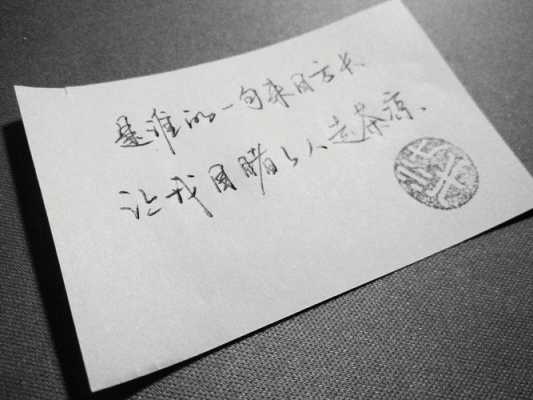 是谁的一句来日方长
让我目睹了人走茶凉、